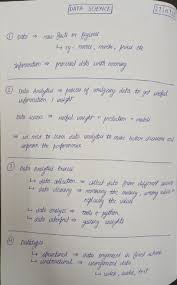 DATA SCIENCE
① Data → raw facts or figures
↳ eg - names, marks, price etc
Information → processed data with meaning
② Data Analytics → process of analyzing data to get useful
information & insight
Data science → useful insight + prediction + models
→ we need to learn data analytics to make better decisions and
improve the performance
③ Data Analysis process
↳ data collection → collect data from different sources
↳ data cleaning → removing the missing, wrong value &
replacing the value
↳ data analysis → tools & python
↳ data interpret → gaining insights
④ Datatypes
↳ structured → data organised in fixed where
↳ unstructured → unorganised data
↳ video, audio, text